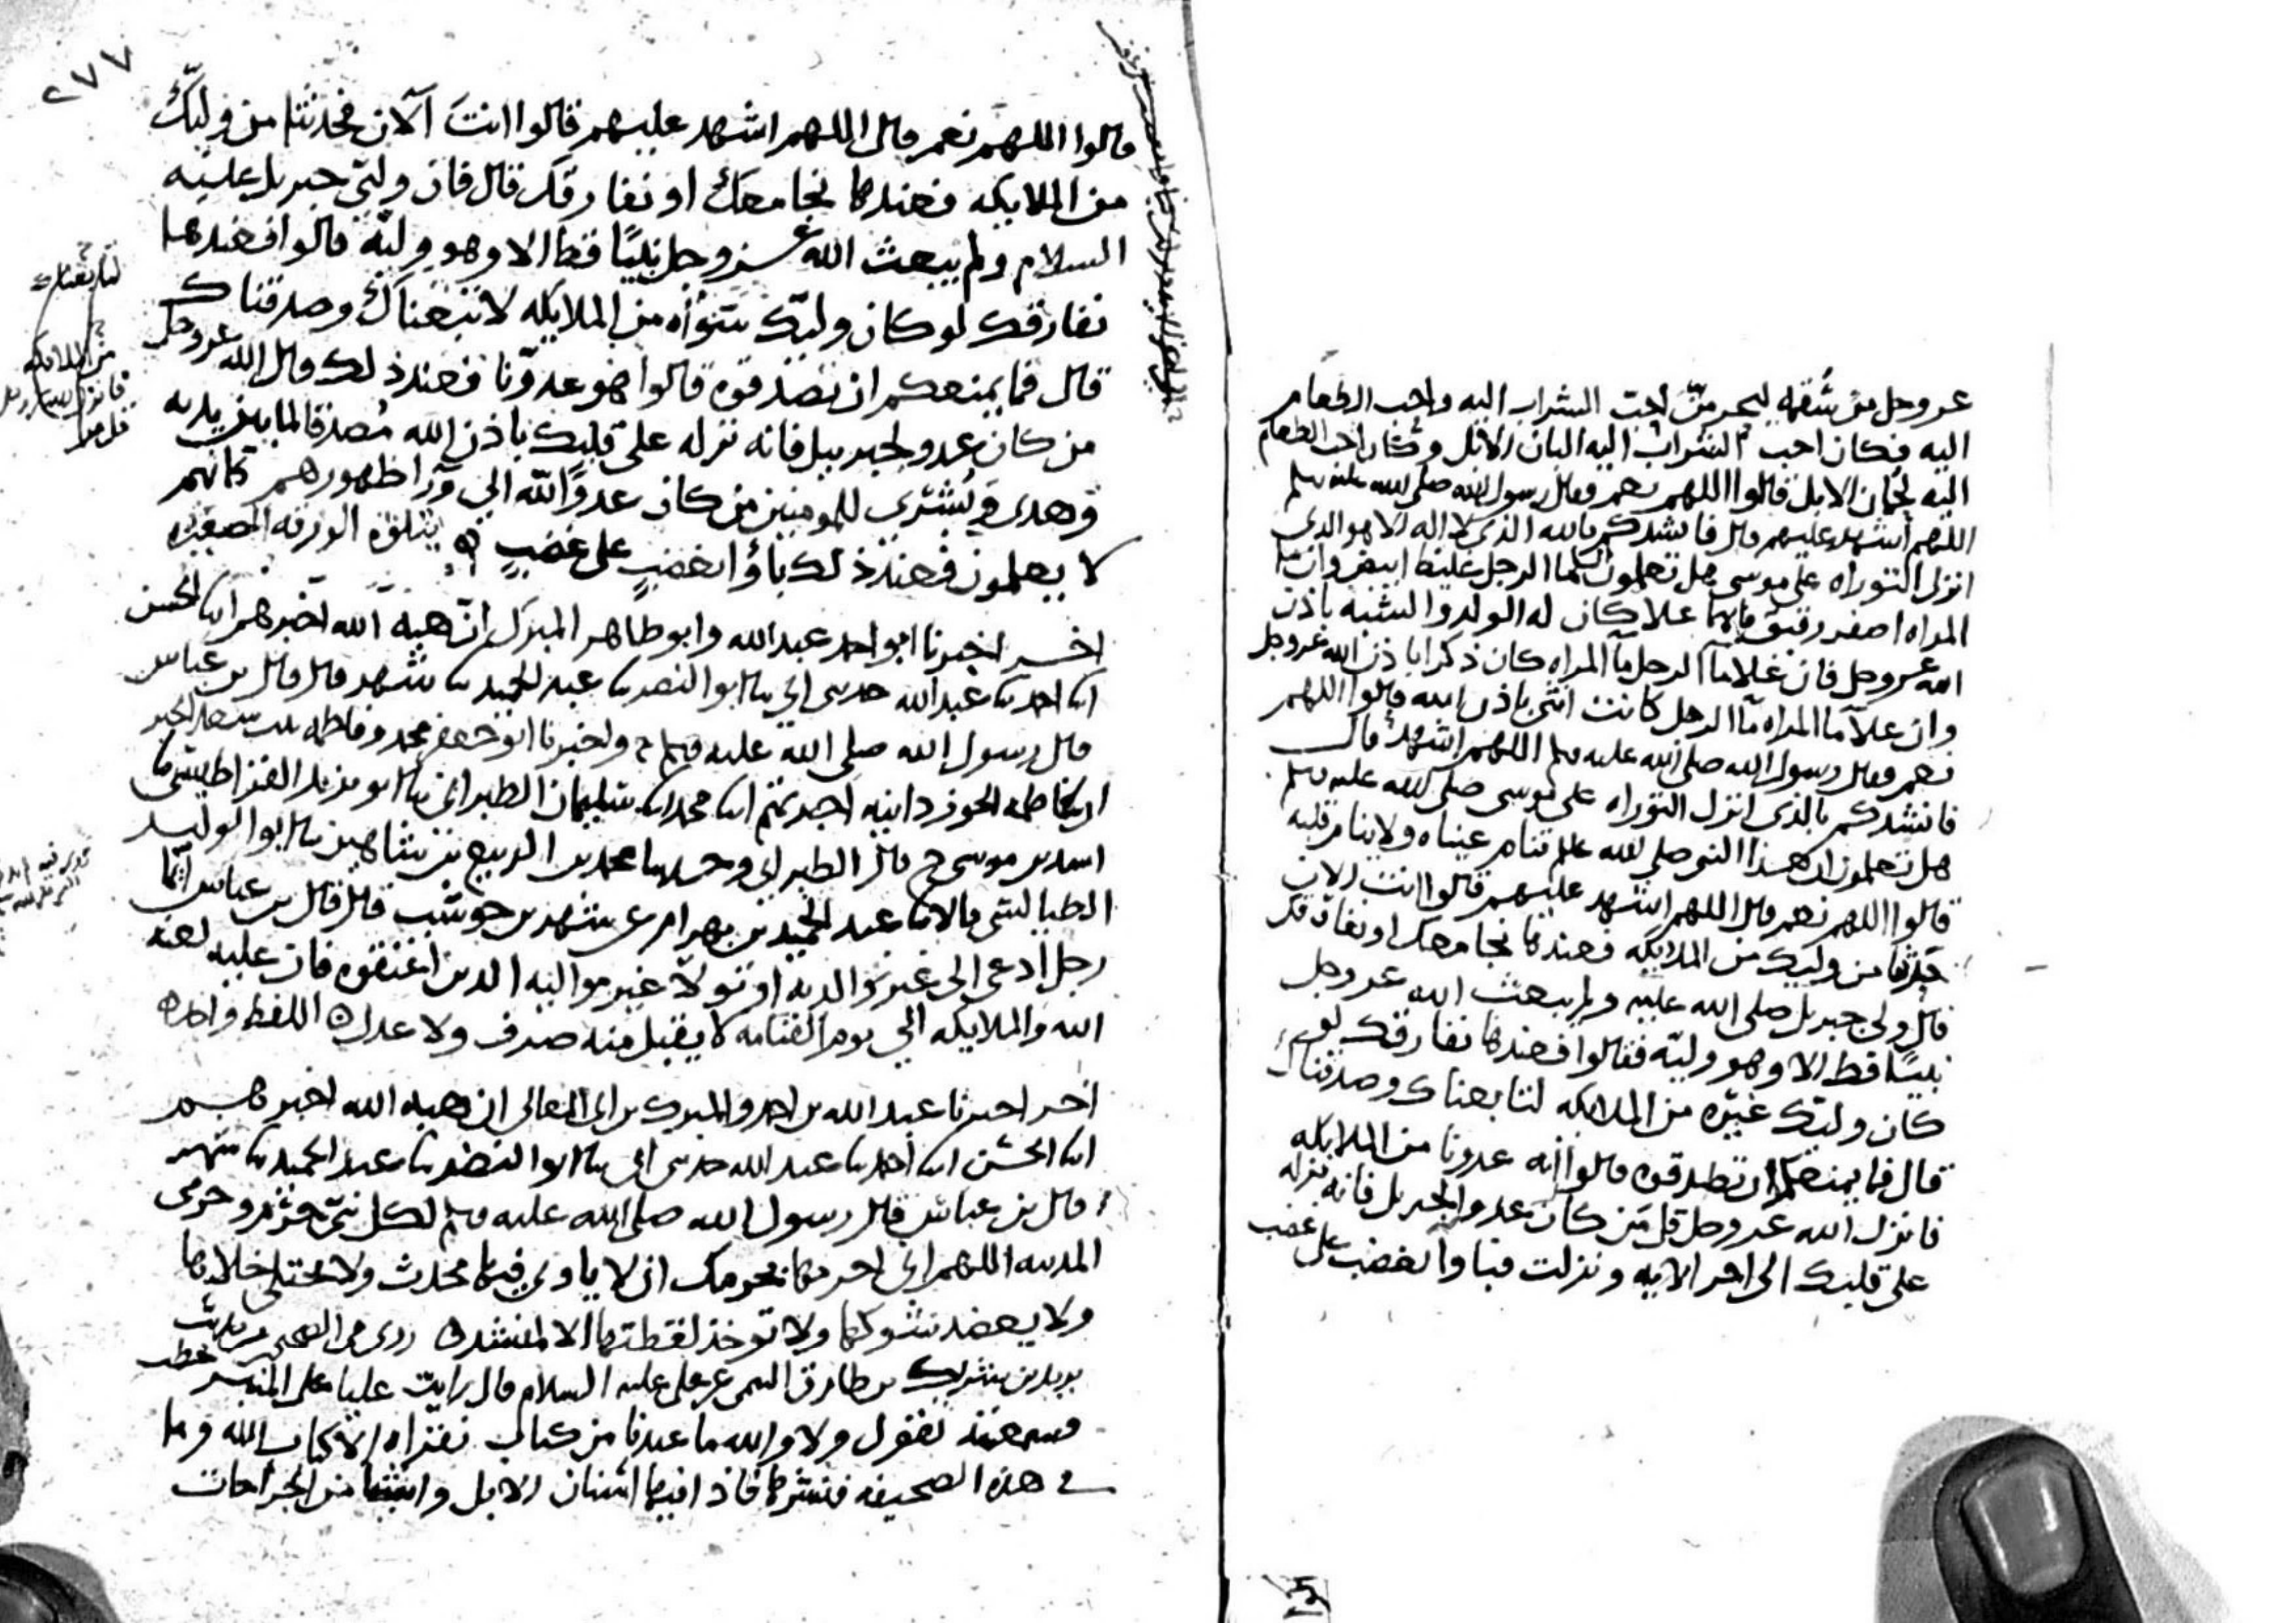 عز وجل من سُقمه ليحرمنّ احبّ الشراب اليه واحب الطعام
اليه فكان احب الشراب اليه البان الابل وكان احب الطعام
اليه لُحمان الابل قالوا اللهم نعم وقال رسول الله صلى الله عليه وسلم
اللهم اشهد عليهم قال فانشدكم بالله الذي لا اله الا هو الذي
انزل التوراه على موسى هل تعلمون ان ما الرجل غليظ ابيض وان ما
المراه اصفر رقيق فايهما علا كان له الولد والشبه باذن
الله عز وجل فان علا ما الرجل ما المراه كان ذكرا باذن الله عز وجل
وان علا ما المراه ما الرجل كانت انثى باذن الله قالوا اللهم
نعم وقال رسول الله صلى الله عليه وسلم اللهم اشهد قال
فانشدكم بالذي انزل التوراه على موسى صلى الله عليه وسلم
هل تعلمون ان هذا النبي صلى الله عليه وسلم تنام عيناه ولا ينام قلبه
قالوا اللهم نعم قال اللهم اشهد عليهم قالوا انت الان
حدثنا من وليك من الملايكه فعندها نجامعك او نفارقك
قال ولي جبريل صلى الله عليه ولم يبعث الله عز وجل
نبيًا قط الا وهو وليّه فقالوا فعندها نفارقك لو
كان وليك غيره من الملايكه لتابعناك وصدقناك
قال فما يمنعكم ان تصدقوه قالوا انه عدونا من الملايكه
فانزل الله عز وجل قل مَن كان عدوا لجبريل فانه نزله
على قلبك الى اخر الايه ونزلت فباوا بغضب على غضب
٢٧٧
قالوا اللهم نعم قال اللهم اشهد عليهم قالوا انتَ آلآن فحدثنا من وليّك
من الملايكه فعندها نجامعك او نفارقك قال فان وليّي جبريل عليه
السلام ولم يبعث الله عز وجل نبيًا قط الا وهو وليّه قالوا فعندها
نفارقك لو كان وليّك سوَاه من الملايكه لاتبعناك وصدقناك
قال فما يمنعكم ان تصدقوه قالوا هو عدوّنا فعند ذلك قال الله عز وجل
من كان عدو لجبريل فانه نزله على قلبك باذن الله مُصدقا لما بين يديه
وهدى وبُشرى للمومنين من كان عدوًا لله الى ورآ ظهورهم كانهم
لا يعلمون فعند ذلك باؤا بغضبٍ على غضبٍ يتلوه الورقه الصغيره
اخر اخبرنا ابو احمد عبد الله وابو طاهر المبرك ان هبه الله اخبرهم ابنا الحسن
ابنا احمد بنا عبد الله حدثني ابي بنا ابو النضر بنا عبد الحميد بنا شهر قال قال بن عباس
قال رسول الله صلى الله عليه وسلم ح واخبرنا ابو جعفر محمد وفاطمه بنت سعد الخير
ان فاطمه الجوزدانيه اخبرتهم ابنا محمد ابنا سليمان الطبراني بنا ابو يزيد القراطيسي بنا
اسد بن موسى ح قال الطبراني وحدثنا محمد بن الربيع بن شاهين بنا ابو الوليد
الطيالسي قالا بنا عبد الحميد بن بهرام عن شهر بن حوشب قال قال بن عباس ايّما
رجل ادعى الى غير والديه او تولا غير مواليه الذين اعتقوه فان عليه لعنه
الله والملايكه الى يوم القيامه لا يقبل منه صرف ولا عدل اللفظ واحد
اخر اخبرنا عبد الله بن احمد والمبرك بن ابي المعالي ان هبه الله اخبرهم
ابنا الحسن ابنا احمد بنا عبد الله حدثني ابي بنا ابو النضر بنا عبد الحميد بنا شهر
قال بن عباس قال رسول الله صلى الله عليه وسلم لكل نبيّ حَرَم وحرمي
المدينه اللهم اني احرمها بحرمك ان لا ياوي فيها محدث ولا يختلى خلاها
ولا يعضد شوكها ولا توخذ لقطتها الا لمنشد روي في الصحيح من حديث
يزيد بن شريك بن طارق التيمي عن علي عليه السلام قال رايت عليا على المنبر يخطب
فسمعته يقول ولا والله ما عندنا من كتاب نقراه الا كتاب الله وما
في هذه الصحيفه فنشرها فاذا فيها اسنان الابل واشيا من الجراحات
لتابعناك
من الملايكه